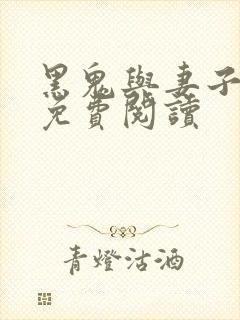 黑鬼與妻子
免費閱讀
青燈沽酒